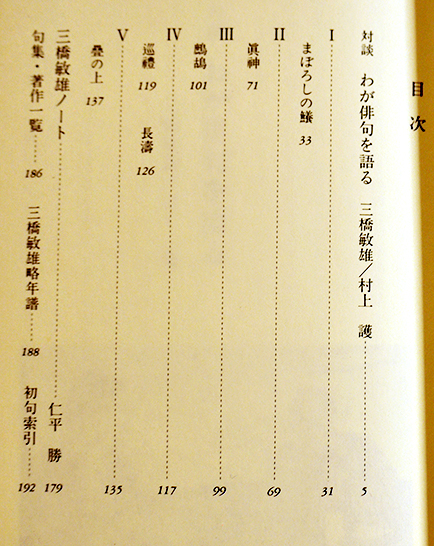 目次
対談 わが俳句を語る 三橋敏雄/村上 護 5
I 31
まぼろしの鱶 33
II 69
眞神 71
III 99
鷓鴣 101
IV 117
巡禮 119 長濤 126
V 135
疊の上 137
三橋敏雄ノート 仁平 勝 179
句集・著作一覧 186 三橋敏雄略年譜 188 初句索引 192